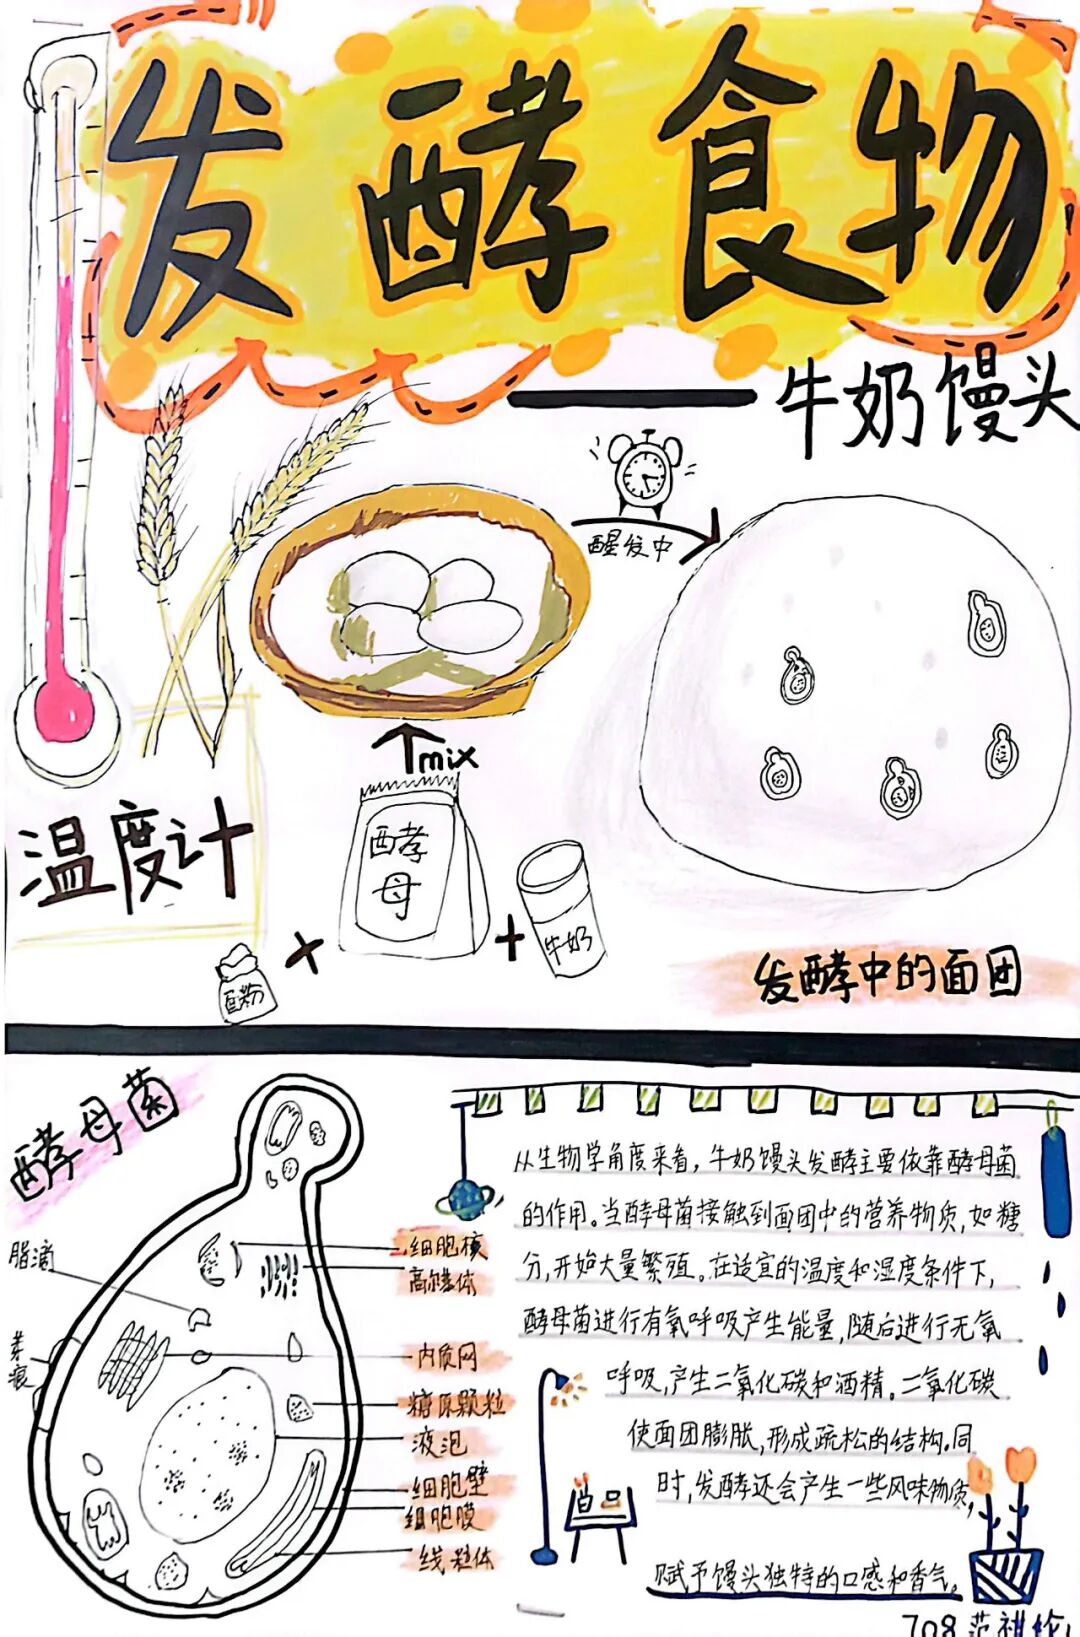 发酵食物
牛奶馒头
醒发中
mix
酵
母
温度计
面粉
牛奶
发酵中的面团
酵母菌
脂滴
芽痕
细胞核
高尔基体
内质网
糖原颗粒
液泡
细胞壁
细胞膜
线粒体
从生物学角度来看，牛奶馒头发酵主要依靠酵母菌
的作用。当酵母菌接触到面团中的营养物质，如糖
分，开始大量繁殖。在适宜的温度和湿度条件下，
酵母菌进行有氧呼吸产生能量，随后进行无氧
呼吸，产生二氧化碳和酒精。二氧化碳
使面团膨胀，形成疏松的结构。同
时，发酵还会产生一些风味物质，
赋予馒头独特的口感和香气。
708 范祺